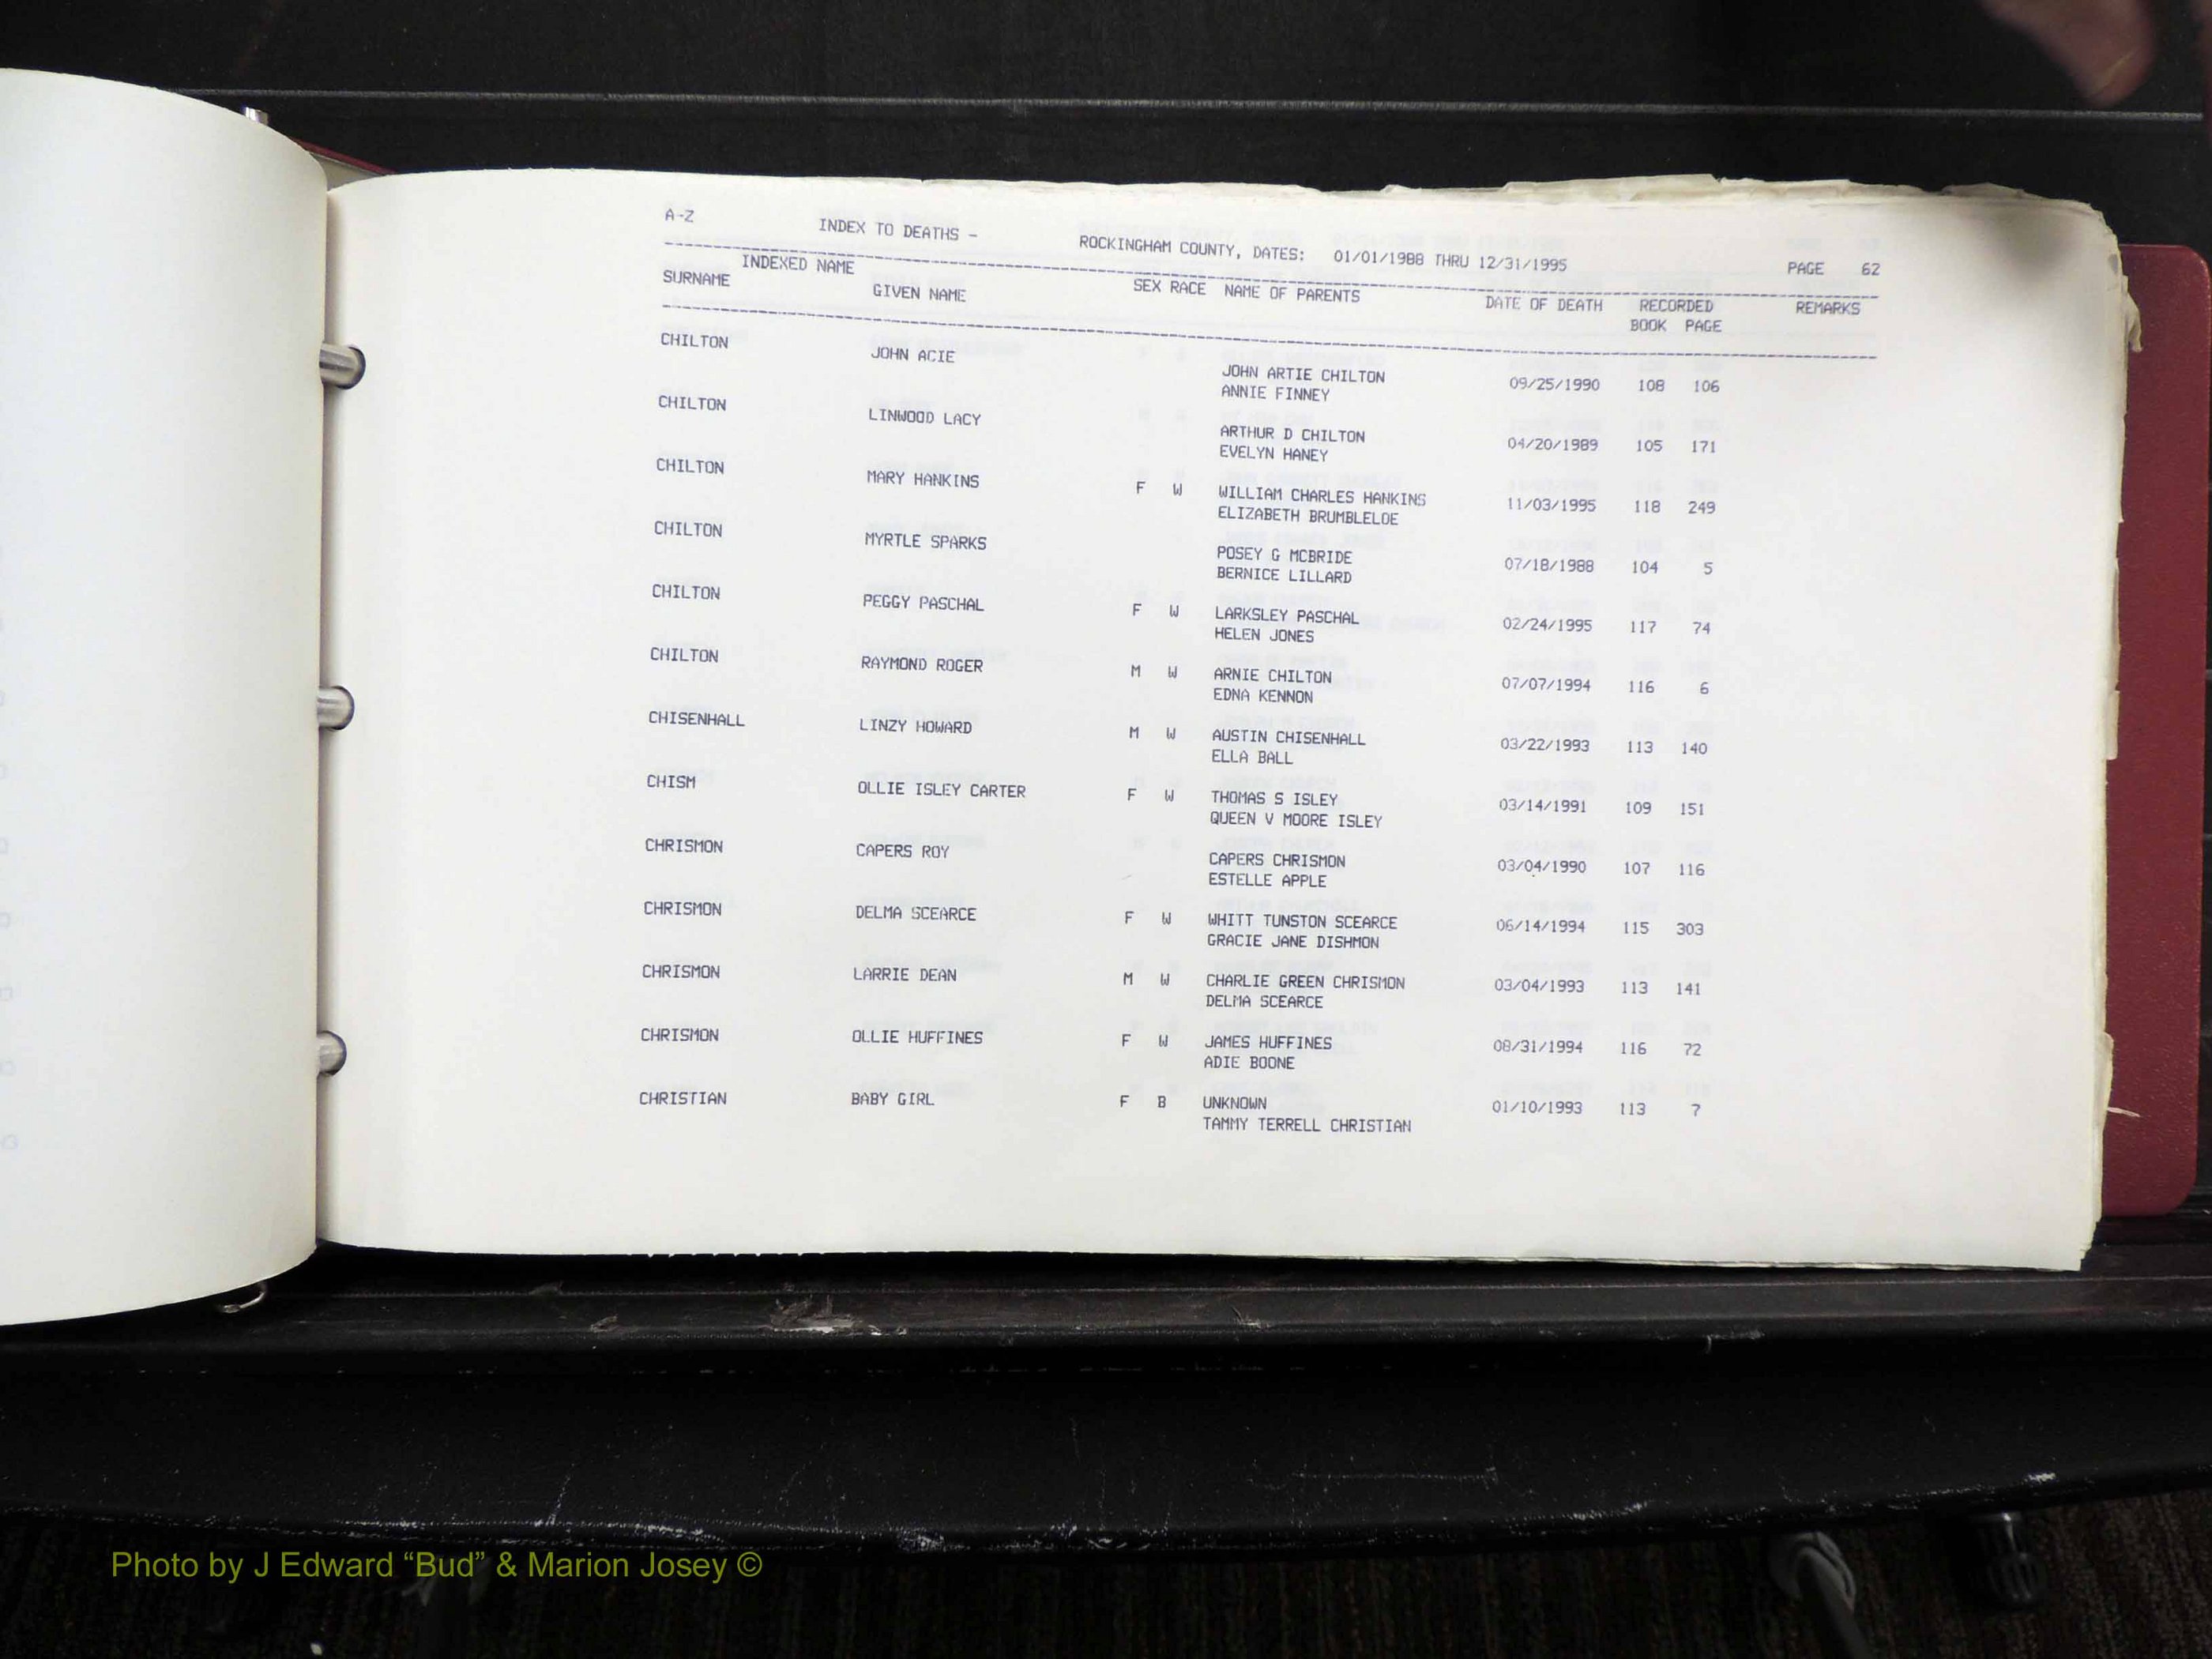 A-Z INDEX TO DEATHS - ROCKINGHAM COUNTY, DATES: 01/01/1988 THRU 12/31/1995 PAGE 62
INDEXED NAME
SURNAME GIVEN NAME SEX RACE NAME OF PARENTS DATE OF DEATH RECORDED REMARKS
BOOK PAGE
CHILTON JOHN ACIE JOHN ARTIE CHILTON 09/25/1990 108 106
ANNIE FINNEY
CHILTON LINWOOD LACY ARTHUR D CHILTON 04/20/1989 105 171
EVELYN HANEY
CHILTON MARY HANKINS F W WILLIAM CHARLES HANKINS 11/03/1995 118 249
ELIZABETH BRUMBLELOE
CHILTON MYRTLE SPARKS POSEY G MCBRIDE 07/18/1988 104 5
BERNICE LILLARD
CHILTON PEGGY PASCHAL F W LARKSLEY PASCHAL 02/24/1995 117 74
HELEN JONES
CHILTON RAYMOND ROGER M W ARNIE CHILTON 07/07/1994 116 6
EDNA KENNON
CHISENHALL LINZY HOWARD M W AUSTIN CHISENHALL 03/22/1993 113 140
ELLA BALL
CHISM OLLIE ISLEY CARTER F W THOMAS S ISLEY 03/14/1991 109 151
QUEEN V MOORE ISLEY
CHRISMON CAPERS ROY CAPERS CHRISMON 03/04/1990 107 116
ESTELLE APPLE
CHRISMON DELMA SCEARCE F W WHITT TUNSTON SCEARCE 06/14/1994 115 303
GRACIE JANE DISHMON
CHRISMON LARRIE DEAN M W CHARLIE GREEN CHRISMON 03/04/1993 113 141
DELMA SCEARCE
CHRISMON OLLIE HUFFINES F W JAMES HUFFINES 08/31/1994 116 72
ADIE BOONE
CHRISTIAN BABY GIRL F B UNKNOWN 01/10/1993 113 7
TAMMY TERRELL CHRISTIAN
Photo by J Edward “Bud” & Marion Josey ©